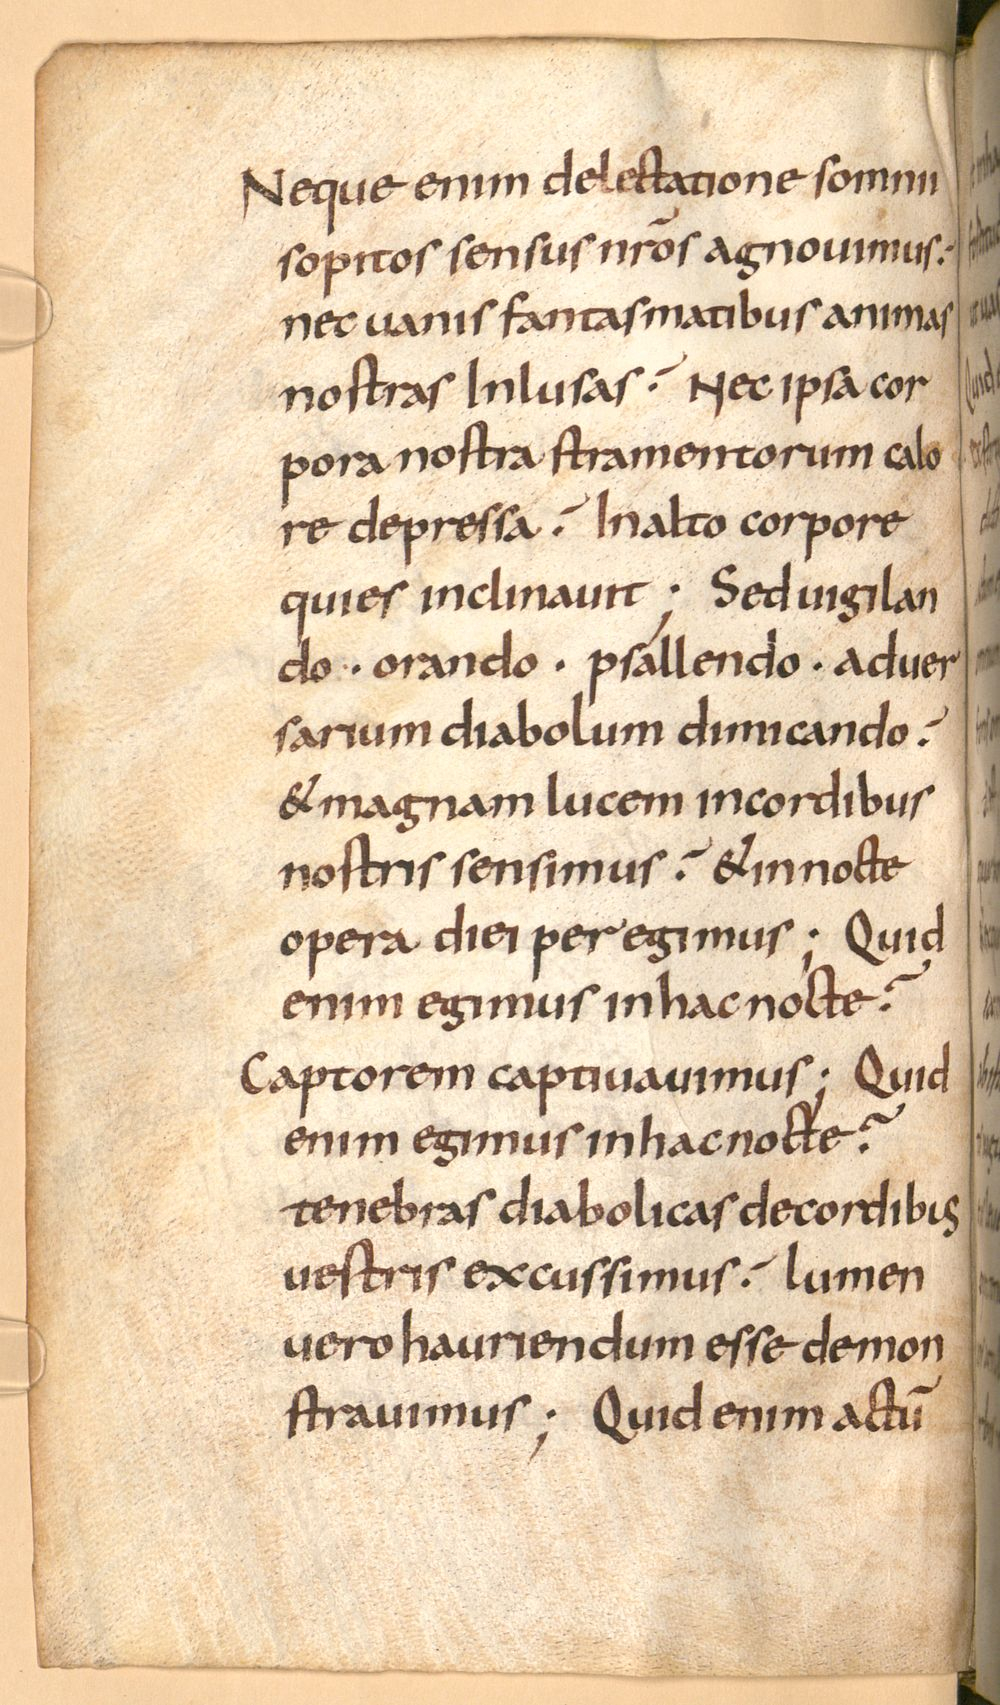 Neque enim delectatione somni
sopitos sensus nr̄os agnouimus.
nec uanis fantasmatibus animas
nostras Inlusas. Nec ipsa cor
pora nostra stramentorum calo
re depressa. In alto corpore
quies inclinauit ; Sed uigilan
do · orando · psallendo · aduer
sarium diabolum dimicando.
& magnam lucem in cordibus
nostris sensimus. & in nocte
opera diei peregimus ; Quid
enim egimus in hac nocte?
Captorem captiuauimus ; Quid
enim egimus in hac nocte?
tenebras diabolicas de cordibus
uestris excussimus. lumen
uero hauriendum esse demon
strauimus ; Quid enim actū